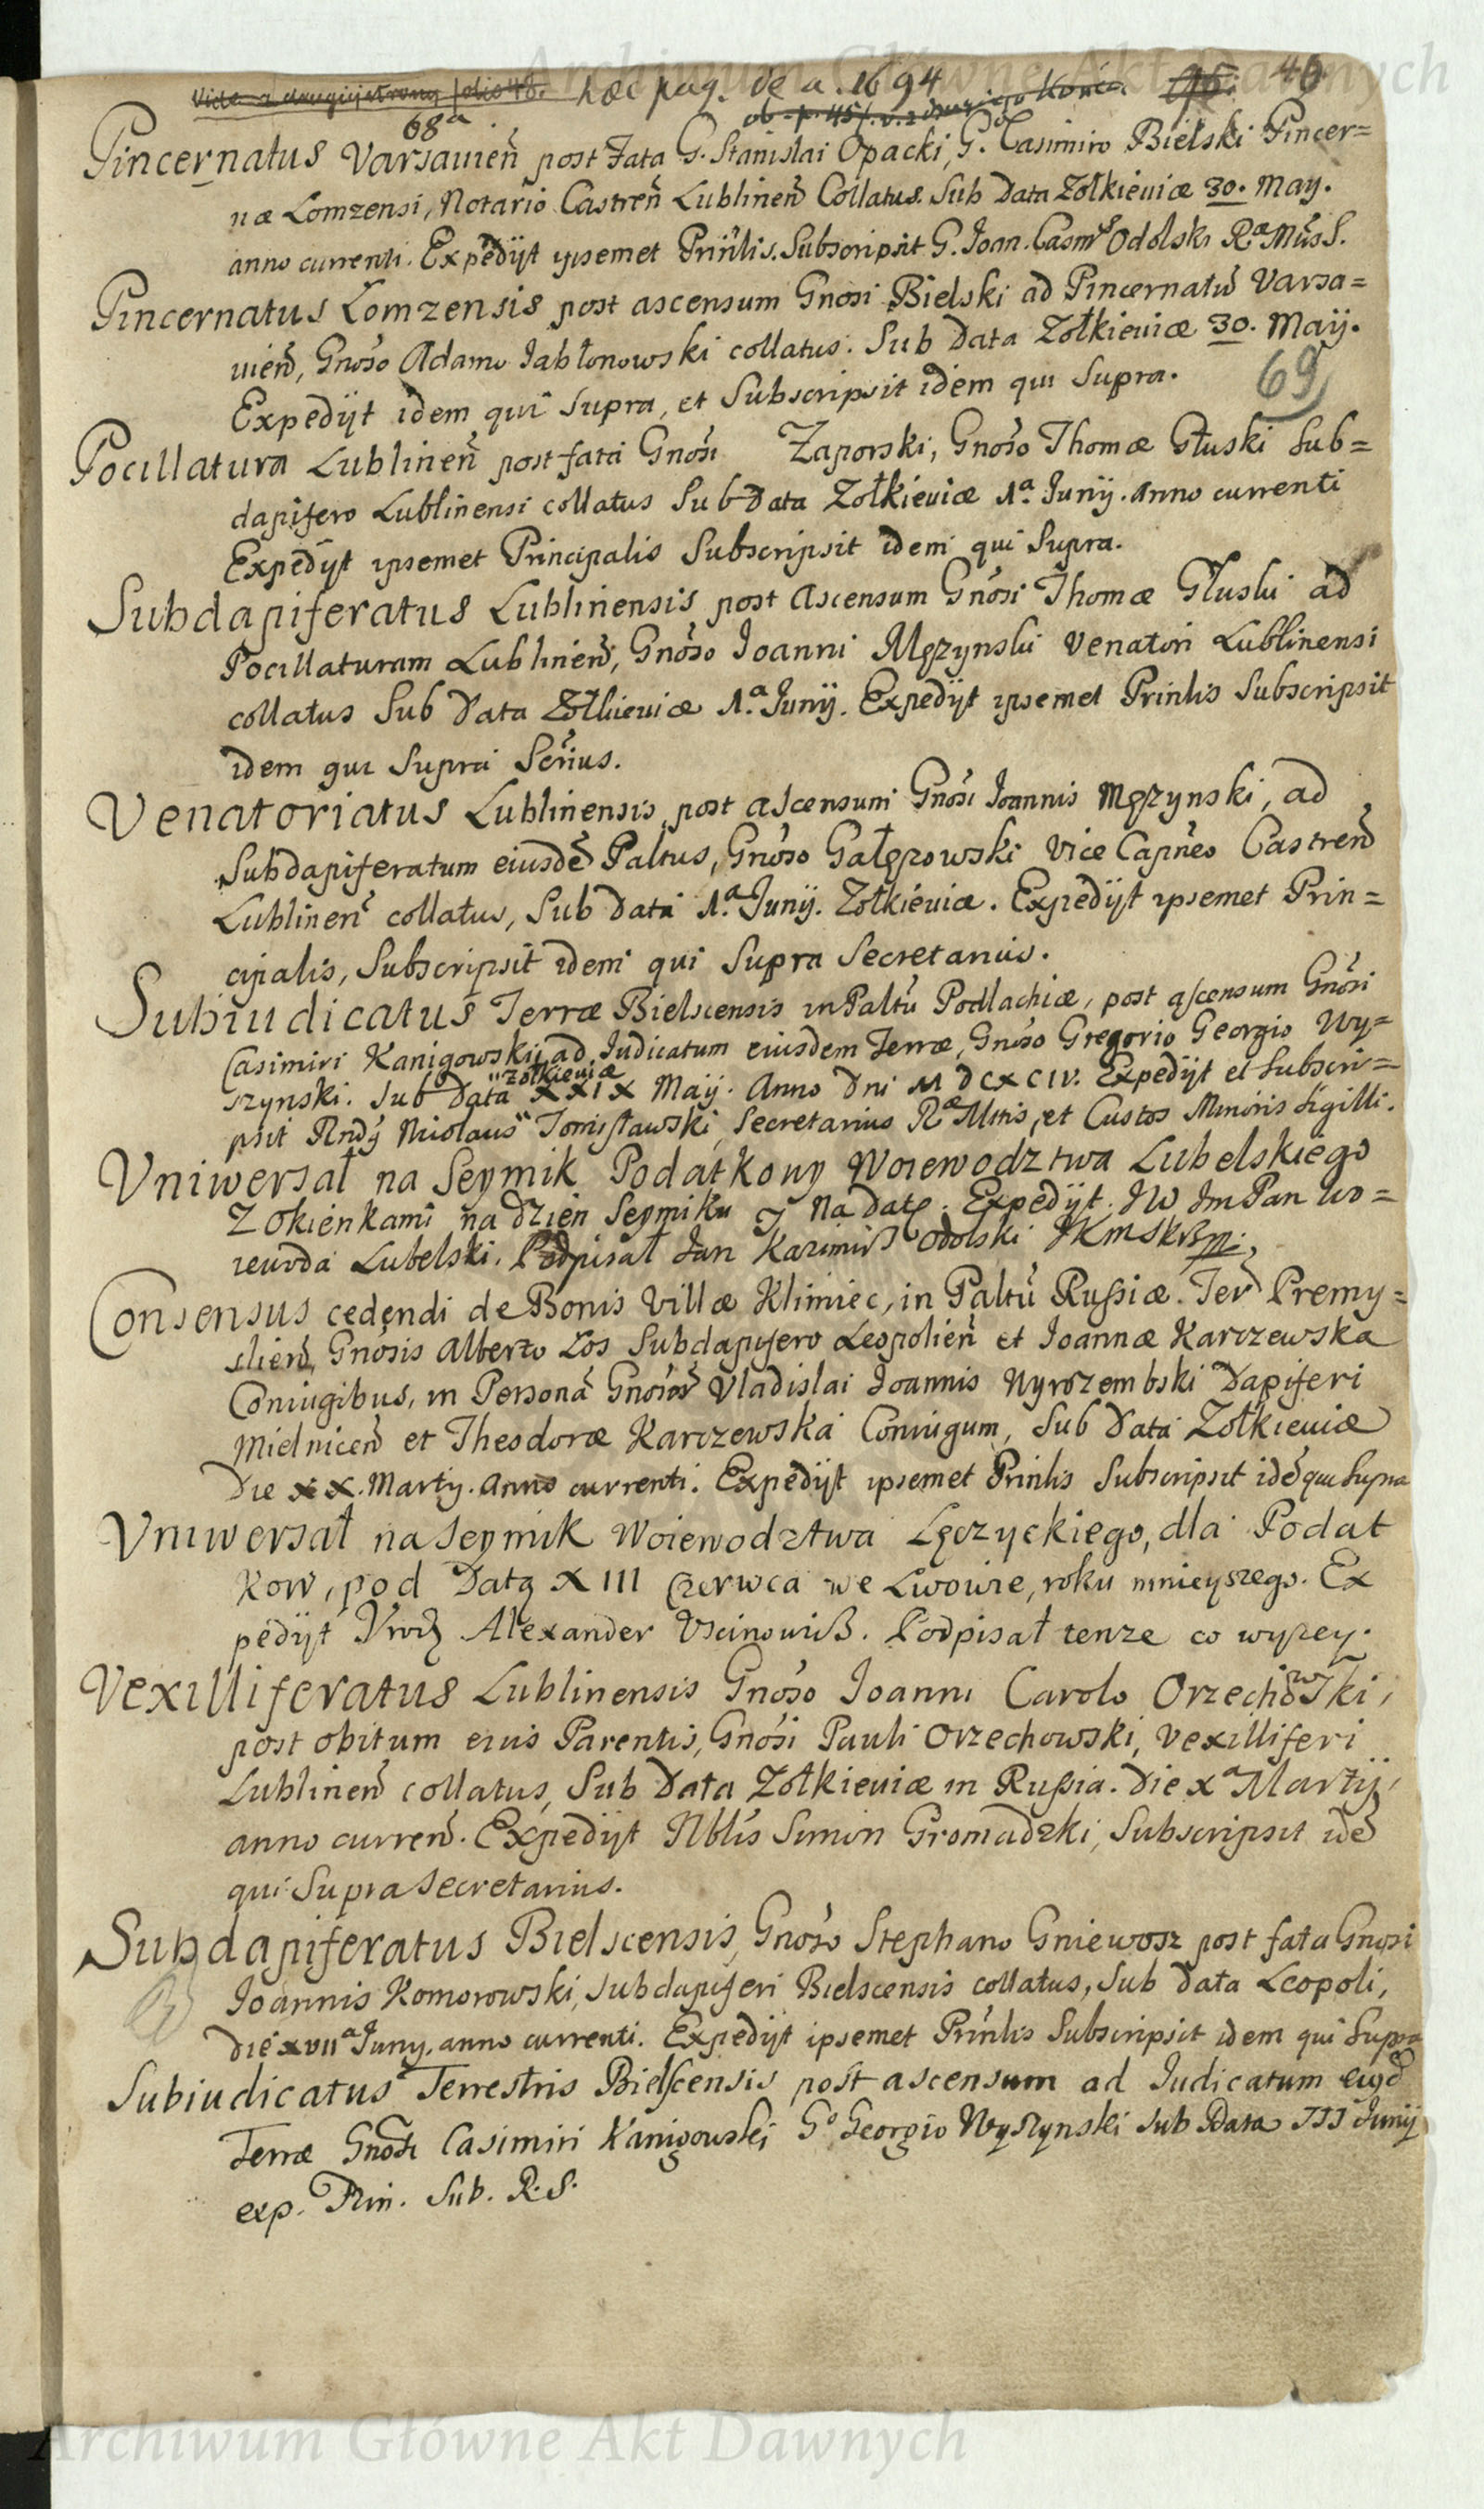 Archiwum Główne Akt Dawnych
Vide z drugiej strony folio 46. hæc pag. de a. 1694 46
68ª
Pincernatus Varsavień post Fata G. Stanislai Opacki, Gº. Casimiro Bielski Pincer=
næ Lomzensi, Notario Castreń Lublineń Collatus. Sub Data Zołkieviæ 30. May.
anno currenti. Expedijt ipsemet Prinlis. Subscripsit G. Joan. Casm Odolski Rª Mtis S.
Pincernatus Lomzensis post ascensum Gnosi Bielski ad Pincernatū Varsa=
vień, Gnoso Adamo Jabłonowski collatus. Sub Data Zołkieviæ 30. Maij.
Expedijt idem qui supra, et Subscripsit idem qui supra.
69
Pocillatura Lublineń post fata Gnosi Zaporski, Gnoso Thomæ Głuski Sub=
dapifero Lublinensi collatus Sub Data Zołkieviæ 1ª. Junij. Anno currenti
Expedijt ipsemet Principalis Subscripsit idem qui supra.
Subdapiferatus Lublinensis post Ascensum Gnosi Thomæ Głuski ad
Pocillaturam Lublineń, Gnoso Joanni Męzynski Venatori Lublinensi
collatus Sub Data Zołkieviæ 1.ª Junij. Expedijt ipsemet Prinlis Subscripsit
idem qui Supra Scrius.
Venatoriatus Lublinensis, post ascensum Gnosi Joannis Męzynski, ad
Subdapiferatum eiusdē Paltus, Gnoso Gałęzowski Vice Capneo Castreń
Lublineń collatus, Sub Data 1.ª Junij. Zołkieviæ. Expedijt ipsemet Prin=
cipalis, Subscripsit idem qui Supra Secretarius.
Subiudicatus Terræ Bielscensis in Paltū Podlachiæ, post ascensum Gnosi
Casimiri Kanigowskij ad Judicatum eiusdem Terræ, Gnoso Gregorio Georgio Wy=
szynski. Sub Data "Zołkieviæ XXIX Maij. Anno Dni MDCXCIV. Expedijt et Subscri=
psit Rndg Nicolaus Tomisławski, Secretarius Rª Mtis, et Custos Minoris Sigilli.
Vniwersał na Seymik Podatkowy Woiewodztwa Lubelskiego
Z Okienkami na dzien Seymiku y Na datę. Expedijt. JW Jm Pan Wo=
iewoda Lubelski. Podpisał Jan Kazimirß Odolski JKMSkrß mp.
Consensus cedendi de Bonis Villæ Klimiec, in Paltū Rußiæ. Ter Premy=
slień, Gnosis Alberto Łos Subdapifero Leopolień et Joannæ Karczewska
Coniugibus, in Personā Gnosor Vladislai Joannis Nyrszembski Dapiferi
Mielniceń et Theodoræ Karczewska Coniugum, Sub Data Zołkieviæ
Die XX. Martij. Anno currenti. Expedijt ipsemet Prinlis Subscripsit idē qui supra
Vniwersał na Seymik Woiewodztwa Lęczyckiego, dla Podat
kow, pod Datą XIII Czerwca we Lwowie, roku ninieyszego. Ex
pedijt Vrodz Alexander Vscinowiß. Podpisał tenze co wyzey.
Vexilliferatus Lublinensis Gnoso Joanni Carolo Orzechowski,
post obitum eius Parentis, Gnosi Pauli Orzechowski, Vexilliferi
Lublineń collatus, Sub Data Zołkieviæ in Rußia. Die Xª Martij,
anno curreń. Expedijt Nblis Simon Gromadzki, Subscripsit idē
qui Supra Secretarius.
Subdapiferatus Bielscensis, Gnoso Stephano Gniewosz post fata Gnosi
Joannis Komorowski, Subdapiferi Bielscensis collatus, Sub Data Leopoli,
Die XVIIª Juny. anno currenti. Expedijt ipsemet Prinlis Subscripsit idem qui Supra
Subiudicatus Terrestris Bielscensis post ascensum ad Judicatum eiusd
Terræ Gnosi Casimiri Kanigowski Gº Georgio Wyszynski sub Data III Junij
exp. Prin. Sub. R. S.
Archiwum Główne Akt Dawnych